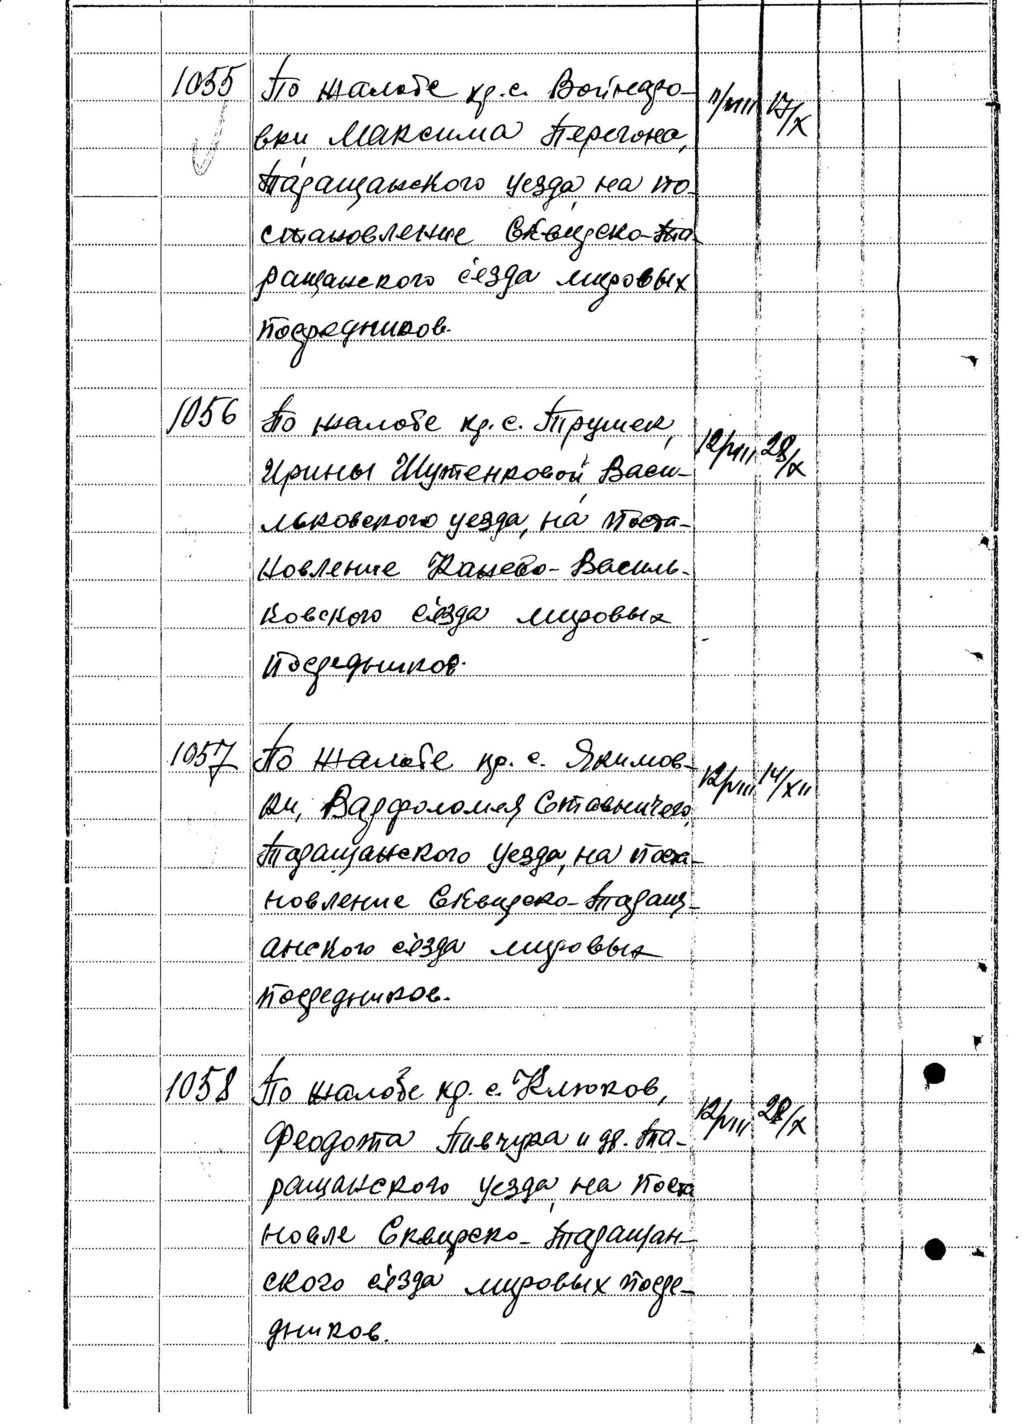 1055 По жалобе кр. с. Войнаро- 11/VIII 17/X
вки Максима Перегона,
Таращанского уезда, на по-
становление Сквирско-Та-
ращанского сьезда мировых
посредников.
1056 По жалобе кр. с. Трушек, 12/VIII 28/X
Ирины Шутенковой, Васи-
льковского уезда, на поста-
новление Канево-Василь-
ковского сьезда мировых
посредников.
1057 По жалобе кр. с. Якимов- 12/VIII 14/XII
ки, Варфоломея Ставничего,
Таращанского уезда, на поста-
новление Сквирско-Таращ-
анского сьезда мировых
посредников.
1058 По жалобе кр. с. Клюков, 12/VIII 28/X
Феодота Пивчука и др. Та-
ращанского уезда, на поста
новле Сквирско-Таращан-
ского сьезда мировых посре-
дников.